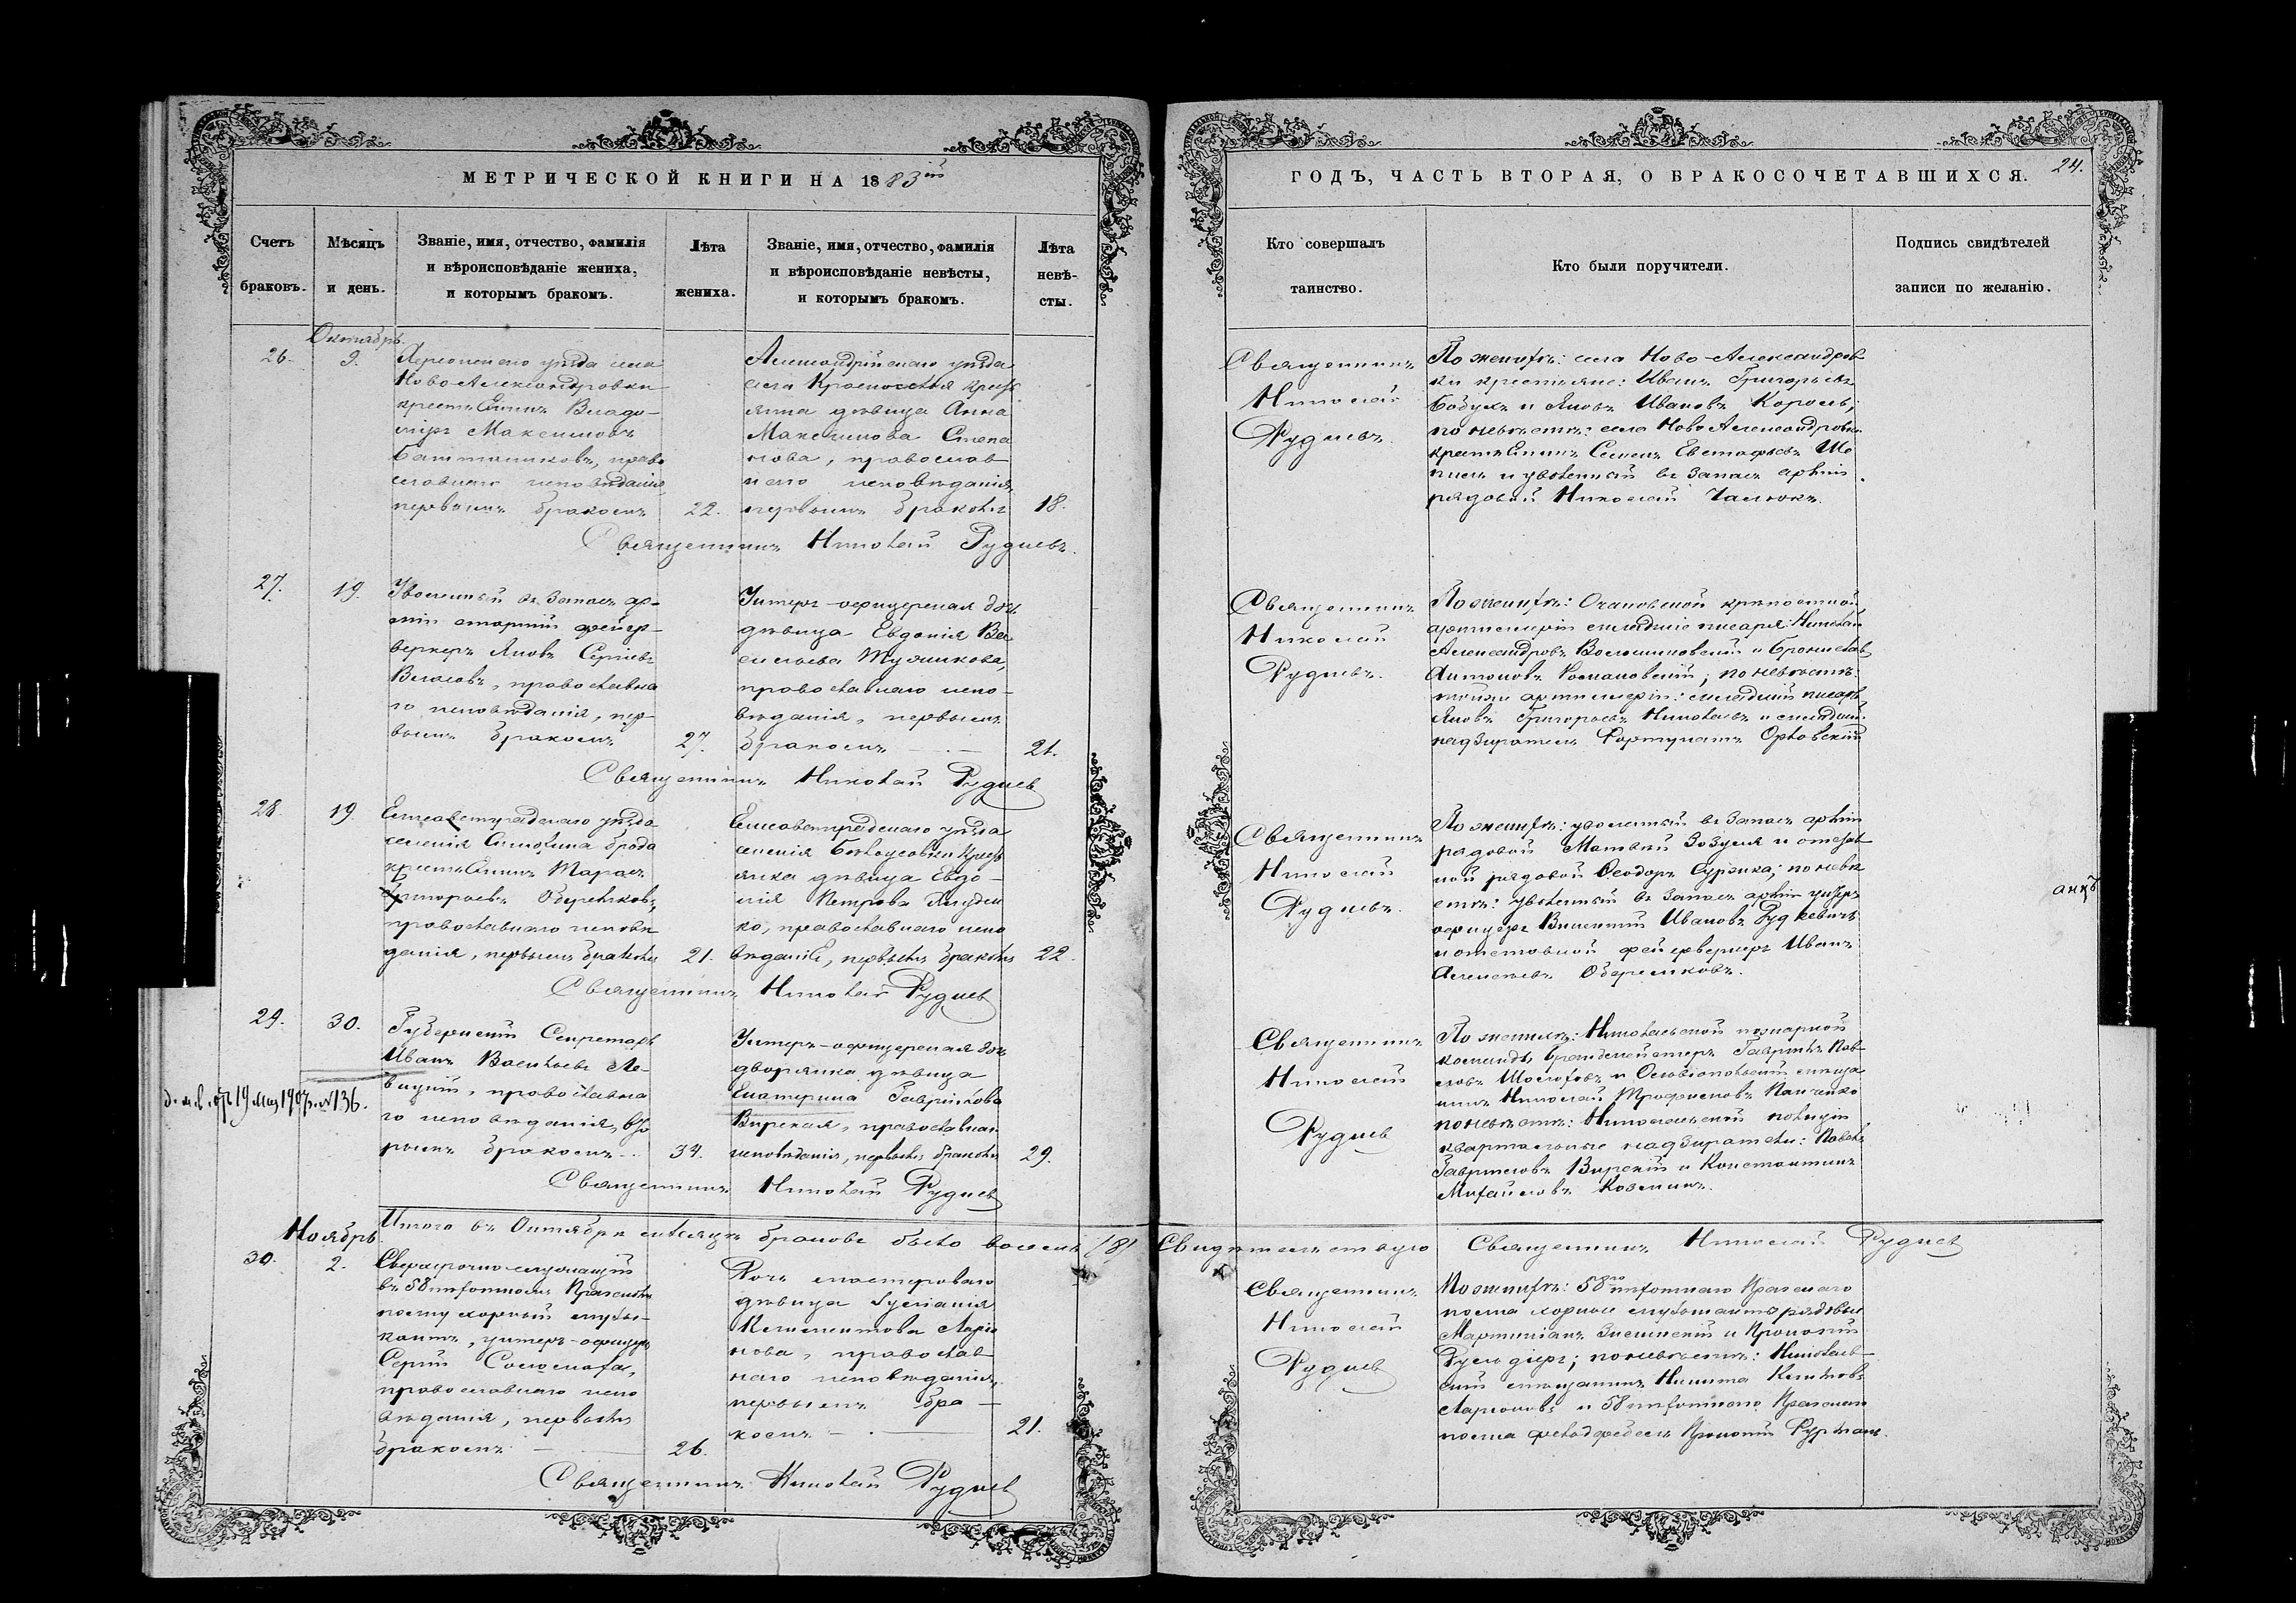 МЕТРИЧЕСКОЙ КНИГИ НА 1883ій
Счетъ браковъ.
Мѣсяцъ и день.
Званіе, имя, отчество, фамилія
и вѣроисповѣданіе жениха,
и которымъ бракомъ.
Лѣта жениха.
Званіе, имя, отчество, фамилія
и вѣроисповѣданіе невѣсты,
и которымъ бракомъ.
Лѣта невѣ-
сты.
Октябрь
26.
9.
Херсонскаго уѣзда села
Ново Александровки
крестьянинъ Влади-
міръ Максимовъ
православнаго исповѣданія
первымъ бракомъ
22.
Александрійскаго уѣзда
села
дѣвица Анна
Максимова Степа
нова, православ
наго исповѣданія,
первымъ бракомъ
18.
Священникъ Николай Рудневъ.
27.
19.
Уволенный въ запасъ ар-
міи старшій фейер-
веркеръ Яковъ Сергіевъ
Власовъ, православна
го исповѣданія, пер-
вымъ бракомъ
27.
Унтеръ-офицерская дочь
дѣвица Евдокія Ва
сильева
православнаго испо-
вѣданія, первымъ
бракомъ
21.
Священникъ Николай Рудневъ
28.
19.
Елисаветградскаго уѣзда
селенія брода
крестьянинъ Тарасъ
Григорьевъ
православнаго исповѣ
данія, первымъ бракомъ
21.
Елисаветградскаго уѣзда
селенія крест
янка дѣвица Евдо-
кія Петрова
ко, православнаго испо
вѣданія, первымъ бракомъ
22.
Священникъ Николай Рудневъ
29.
30.
Губернскій Секретарь
Иванъ Васильевъ Ле-
вицкій, православна
го исповѣданія, вто
рымъ бракомъ
34.
Унтеръ-офицерская дочь
дворянка дѣвица
Екатерина Гаврилова
Вирская, православнаго
исповѣданія, первымъ бракомъ
29.
19 Мая 1907 г. № 136.
Священникъ Николай Рудневъ
Итого въ Октябрѣ мѣсяцѣ браковъ было восемь (8)
Ноябрь
30.
2.
Сверхсрочно-служащій
въ 58 пѣхотномъ Прагскомъ
полку хорный музы-
кантъ, унтеръ-офицеръ
Сергій
православнаго испо
вѣданія, первымъ
бракомъ
26.
Дочь мастероваго
дѣвица
Климентова Ларіо
нова, православ
наго исповѣданія,
первымъ бра-
комъ
21.
Священникъ Николай Рудневъ
ГОДЪ, ЧАСТЬ ВТОРАЯ, О БРАКОСОЧЕТАВШИХСЯ.
24.
Кто совершалъ
таинство.
Кто были поручители.
Подпись свидѣтелей
записи по желанію.
Священникъ
Николай
Рудневъ.
По женихѣ: села Ново-Александров
ки крестьяне: Иванъ Григорьевъ
и Яковъ Ивановъ Король;
по невѣстѣ: села Ново Александровки
крестьянинъ Семенъ Евстафьевъ
и уволенный въ запасъ арміи
рядовой Николай
Священникъ
Николай
Рудневъ.
По женихѣ: Очаковской крѣпостной
артиллеріи младшіе писаря: Николай
Александровъ и Брониславъ
Антоновъ Романовскій; по невѣстѣ:
той же артиллеріи: младшій писарь
Яковъ Григорьевъ Николаевъ и младшій
надзиратель Фортунатъ Орловскій
Священникъ
Николай
Рудневъ.
По женихѣ: уволенный въ запасъ арміи
рядовой Матвей Зозуля и отстав
ной рядовой Феодоръ; по невѣ
стѣ: уволенный въ запасъ арміи унтеръ
офицеръ Викентій Ивановъ Рудкевичъ
и отставной фейерверкеръ Иванъ
Алексѣевъ
Священникъ
Николай
Рудневъ
По женихѣ: Николаевской пожарной
команды брандмейстеръ Гавріилъ Пав
ловъ и мѣща
нинъ Николай Трофимовъ Панченко
по невѣстѣ: Николаевской полиціи
квартальные надзиратели: Павелъ
Гавриловъ Вирскій и Константинъ
Михайловъ Козминъ.
Свидѣтельствую Священникъ Николай Рудневъ
Священникъ
Николай
Рудневъ
По женихѣ: 58го пѣхотнаго Прагскаго
полка хорные музыканты рядовые
Мартиніанъ и Прокопій
по невѣстѣ: Николаев-
скій мѣщанинъ Никита
Ларіоновъ и 58 пѣхотнаго Прагскаго
полка фельдфебель Прокопій